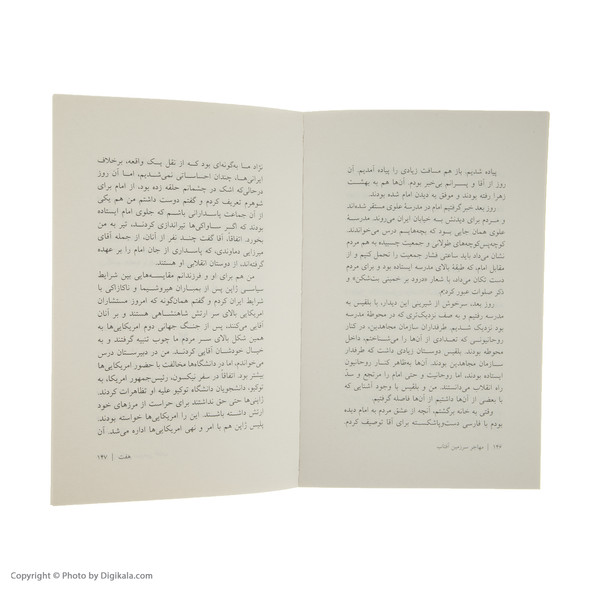 پیاده شدیم. باز هم مسافت زیادی را پیاده آمدیم. آن
روز از آقا و پسرانم بی‌خبر بودم. آن‌ها هم به بهشت
زهرا رفته بودند و موفق به دیدن امام شده بودند.
روز بعد خبر گرفتیم امام در مدرسهٔ علوی مستقر شده‌اند
و مردم برای دیدنش به خیابان ایران می‌روند. مدرسهٔ
علوی همان جایی بود که بچه‌هایم درس می‌خواندند.
کوچه‌پس‌کوچه‌های طولانی و جمعیت چسبیده به هم مردم
نشان می‌داد باید ساعتی فشار جمعیت را تحمل کنیم و از
مقابل امام، که طبقهٔ بالای مدرسه ایستاده بود و برای مردم
دست تکان می‌داد، با شعار «درود بر خمینی بت‌شکن» و
ذکر صلوات عبور کردم.
روز بعد، سرخوش از شیرینی این دیدار، با بلقیس به
مدرسه رفتیم و به صف نزدیک‌تری که در محوطهٔ مدرسه
بود نزدیک شدیم. طرفداران سازمان مجاهدین، در کنار
روحانیونی که تعدادی از آن‌ها را می‌شناختم، داخل
محوطه بودند. بلقیس دوستان زیادی داشت که طرفدار
سازمان مجاهدین بودند. آن‌ها به‌ظاهر کنار روحانیون
ایستاده بودند، اما روحانیت و حتی امام را مرتجع و سدّ
راه انقلاب می‌دانستند. من و بلقیس با وجود آشنایی که
با بعضی از آن‌ها داشتیم از آن‌ها فاصله گرفتیم.
وقتی به خانه برگشتم، آنچه از عشق مردم به امام دیده
بودم با فارسی دست‌وپاشکسته برای آقا توصیف کردم.
۱۴۶ | مهاجر سرزمین آفتاب
نژاد ما به‌گونه‌ای بود که از نقل یک واقعه، برخلاف
ایرانی‌ها، چندان احساساتی نمی‌شدیم، اما آن روز
درحالی‌که اشک در چشمانم حلقه زده بود، از امام برای
شوهرم تعریف کردم و گفتم دوست داشتم من هم یکی
از آن جماعت پاسدارانی باشم که جلوی امام ایستاده
بودند که اگر ساواکی‌ها تیراندازی کردند، تیر به من
بخورد. اتفاقاً، آقا گفت چند نفر از آنان، از جمله آقای
میرزایی دماوندی، که پاسداری از جان امام را بر عهده
گرفته‌اند، از دوستان انقلابی او هستند.
من هم برای او و فرزندانم مقایسه‌هایی بین شرایط
سیاسی ژاپن پس از بمباران هیروشیما و ناکازاکی با
شرایط ایران کردم و گفتم همان‌گونه که امروز مستشاران
امریکایی بالای سر ارتش شاهنشاهی هستند و بر آنان
آقایی می‌کنند، پس از جنگ جهانی دوم امریکایی‌ها به
همین شکل بالای سر مردم ما چوب تنبیه گرفتند و به
خیال خودشان آقایی کردند. من در دبیرستان درس
می‌خواندم، اما در دانشگاه‌ها مخالفت با حضور امریکایی‌ها
بیشتر بود. اتفاقاً در سفر نیکسون، رئیس‌جمهور امریکا، به
توکیو، دانشجویان دانشگاه توکیو علیه او تظاهرات کردند.
ژاپنی‌ها حتی حق نداشتند برای حراست از مرزهای خود
ارتش داشته باشند. این را امریکایی‌ها خواسته بودند.
پلیس ژاپن هم با امر و نهی امریکایی‌ها اداره می‌شد. آن
هفت | ۱۴۷
Copyright © Photo by Digikala.com